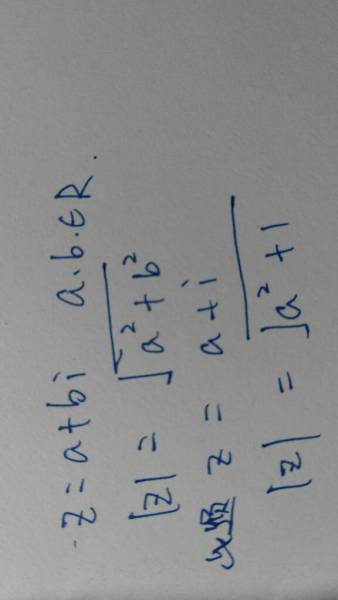 z=a+bi a.b.∈R.
|z| = √a²+b²
题 z = a+i
|z| = √a²+1